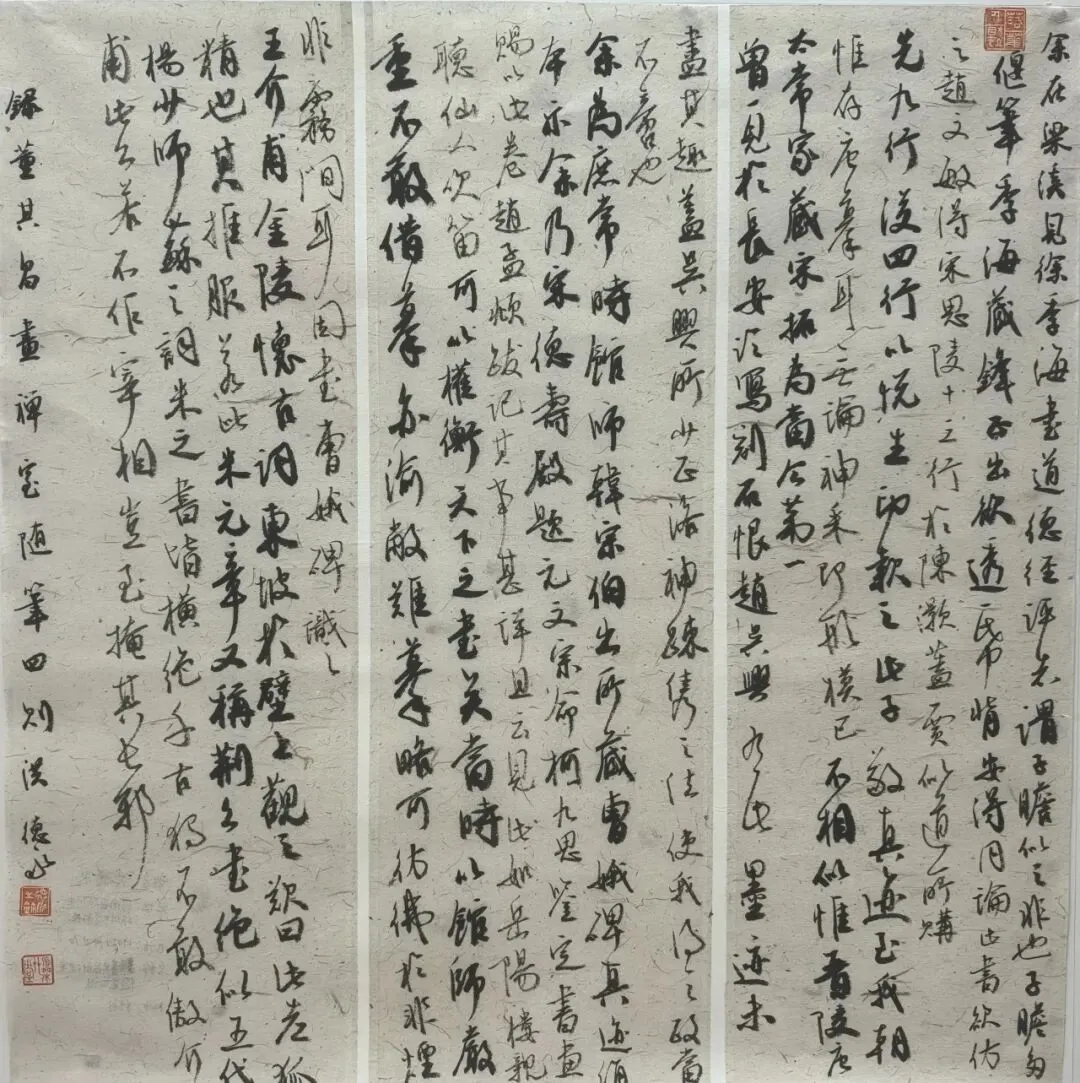 余在梁溪見徐季海書道德經評者謂子瞻似之非也子瞻多
偃筆季海藏鋒正出欲透紙背安得同論此書欲仿
之趙文敏得宋思陵十三行於陳灝蓋賈似道所購
先九行後四行以悅生印款之此子敬真迹至我朝
惟存唐摹耳無論神采即形模已不相似惟晉陵唐
太常家藏宋拓為當今第一
曾一見於長安臨寫刻石恨趙吳興有此墨迹未
盡其趣蓋吳興所少正洛神疎雋之法使我得之故當
不啻也
余為庶常時館師韓宗伯出所藏曹娥碑真迹絹
本示余乃宋德壽殿題元文宗命柯九思鑒定書畫
賜以此卷趙孟頫跋記其事甚詳且云見此如岳陽樓親
聽仙人吹笛可以權衡天下之書矣當時以館師嚴
重不敢借摹亦渝敝難摹略可彷彿於非煙
非霧間耳因書曹娥碑識之
王介甫金陵懷古詞東坡於壁上觀之歎曰此老狐
精也其推服若此米元章又稱荊公書絕似五代
楊少師蘇之詞米之書皆橫絕千古獨不敢傲介
甫此公若不作宰相豈至掩其長耶
錄董其昌畫禪室隨筆四則洪德